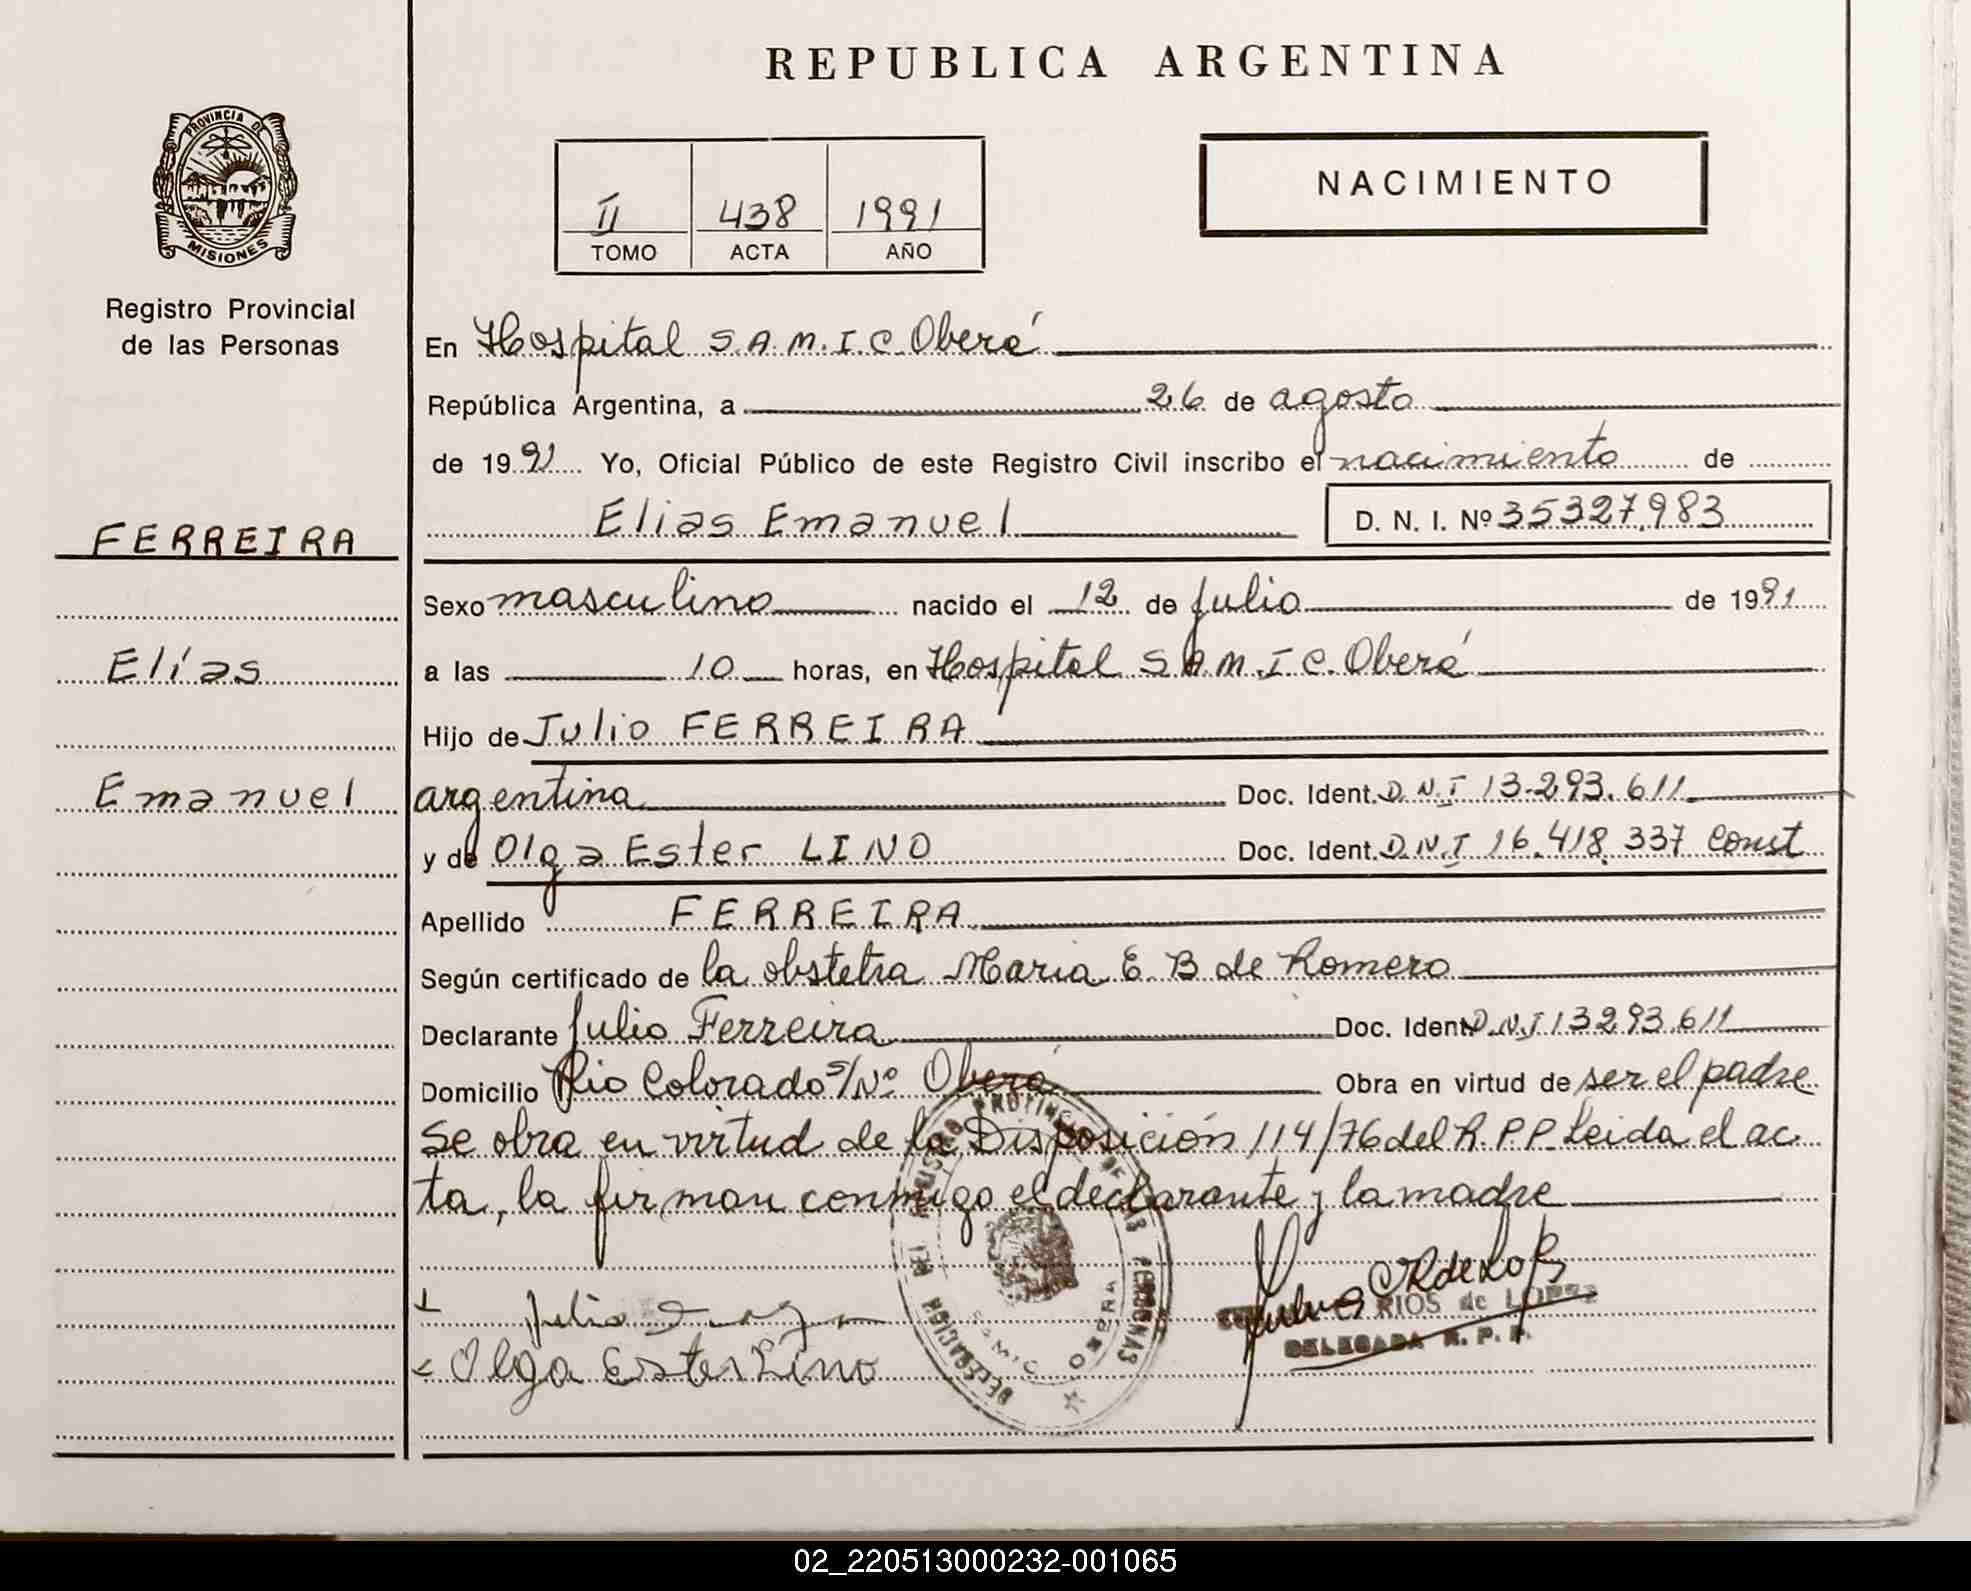 REPUBLICA ARGENTINA
PROVINCIA DE
MISIONES
Registro Provincial
de las Personas
II 438 1991
TOMO ACTA AÑO
NACIMIENTO
En Hospital S.A.M.I.C. Oberá
República Argentina, a 26 de agosto
de 1991 Yo, Oficial Público de este Registro Civil inscribo el nacimiento de
Elias Emanuel D. N. I. Nº 35327.983
FERREIRA
Elías
Emanuel
Sexo masculino nacido el 12 de julio de 1991
a las 10 horas, en Hospital S.A.M.I.C. Oberá
Hijo de Julio FERREIRA
argentina Doc. Ident. D.N.I 13.293.611
y de Olga Ester LINO Doc. Ident. D.N.I 16.418.337 Const
Apellido FERREIRA
Según certificado de la obstetra Maria E. B de Romero
Declarante Julio Ferreira Doc. Ident. D.N.I 13293611
Domicilio Rio Colorado S/Nº Oberá Obra en virtud de ser el padre
Se obra en virtud de la Disposición 114/76 del R.P.P. Leida el ac
ta, la firman conmigo el declarante y la madre
Julio
Olga Ester Lino
DELEGACION DEL REGISTRO PROVINCIAL DE LAS PERSONAS
SAMIC OBERA
RIOS de LOPEZ
DELEGADA R. P. P.
02_220513000232-001065